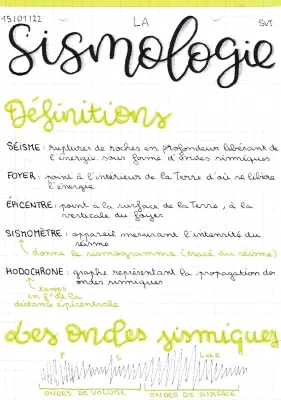 13/01/22 LA SVT
Sismologie
Définitions
SÉISME : ruptures de roches en profondeur libérant de
l'énergie sous forme d'ondes sismiques
FOYER : point à l'intérieur de la Terre d'où se libère
l'énergie
ÉPICENTRE : point à la surface de la Terre, à la
verticale du foyer
SISMOMÈTRE : appareil mesurant l'intensité du
séisme
donne le sismogramme (tracé du séisme)
HODOCHRONE : graphe représentant la propagation des
ondes sismiques
temps
en f° de la
distance épicentrale
Les ondes sismiques
P S L
ONDES DE VOLUME ONDES DE SURFACE